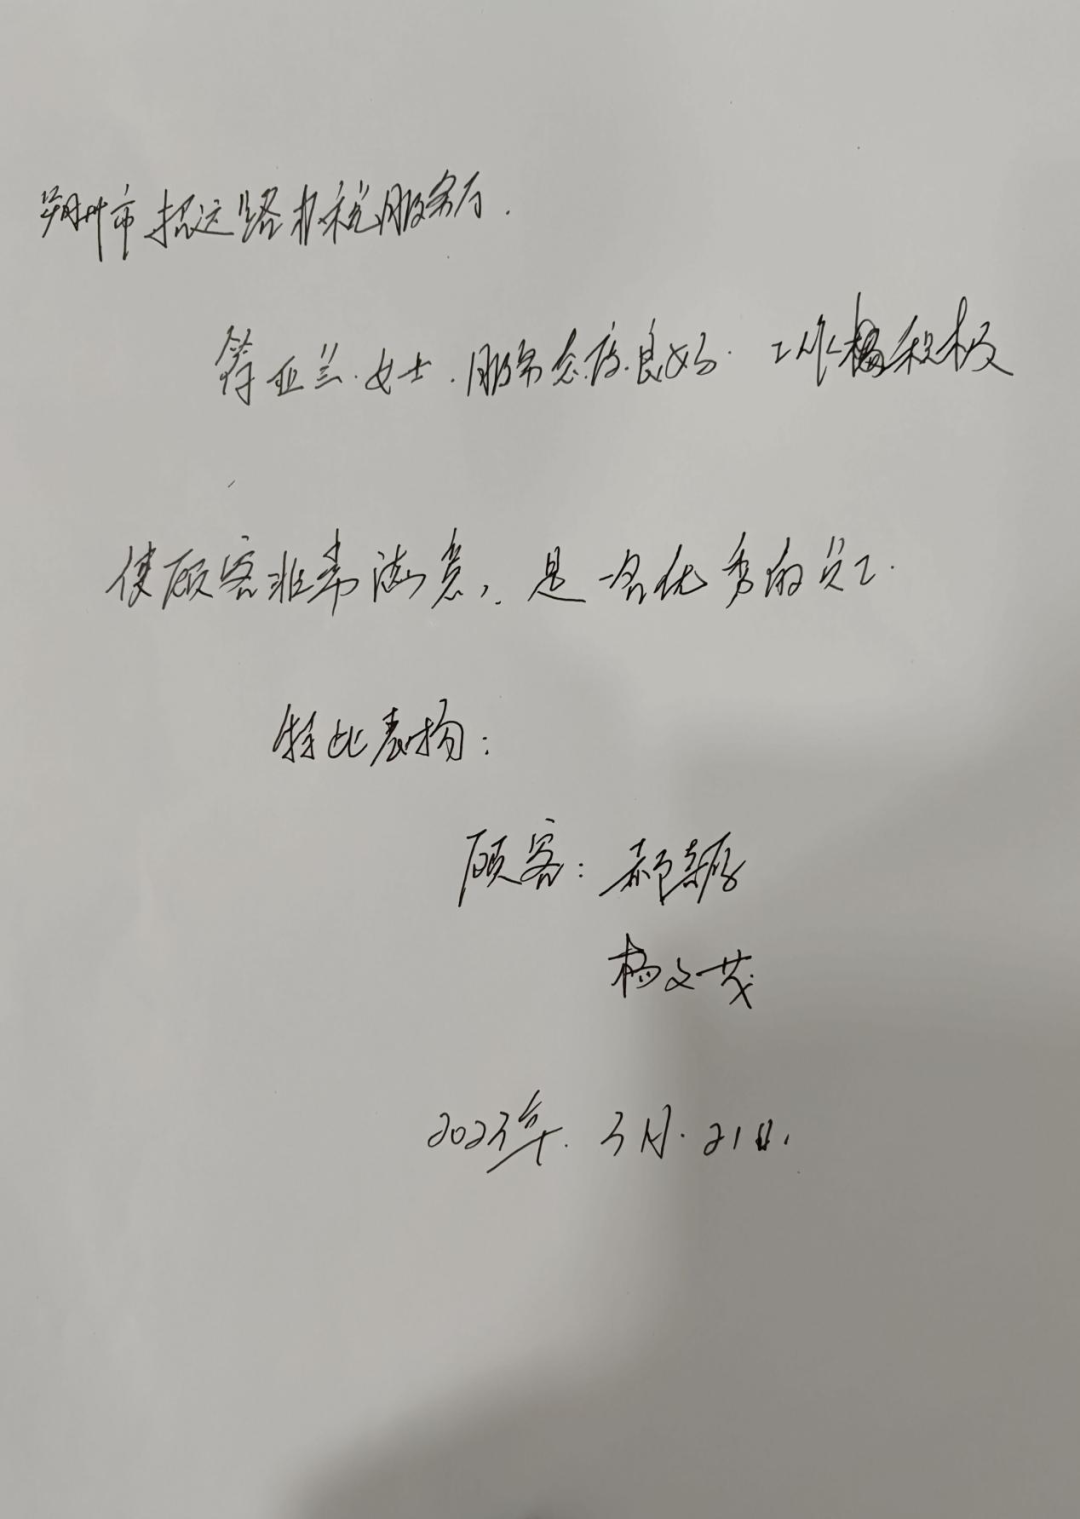 朔州市招远路办税服务厅.
符亚兰.女士.服务态度良好.工作积极
使顾客非常满意,.是一名优秀的员工.
特此表扬:
顾客:郝
杨文茂
2023年.3月.21日.